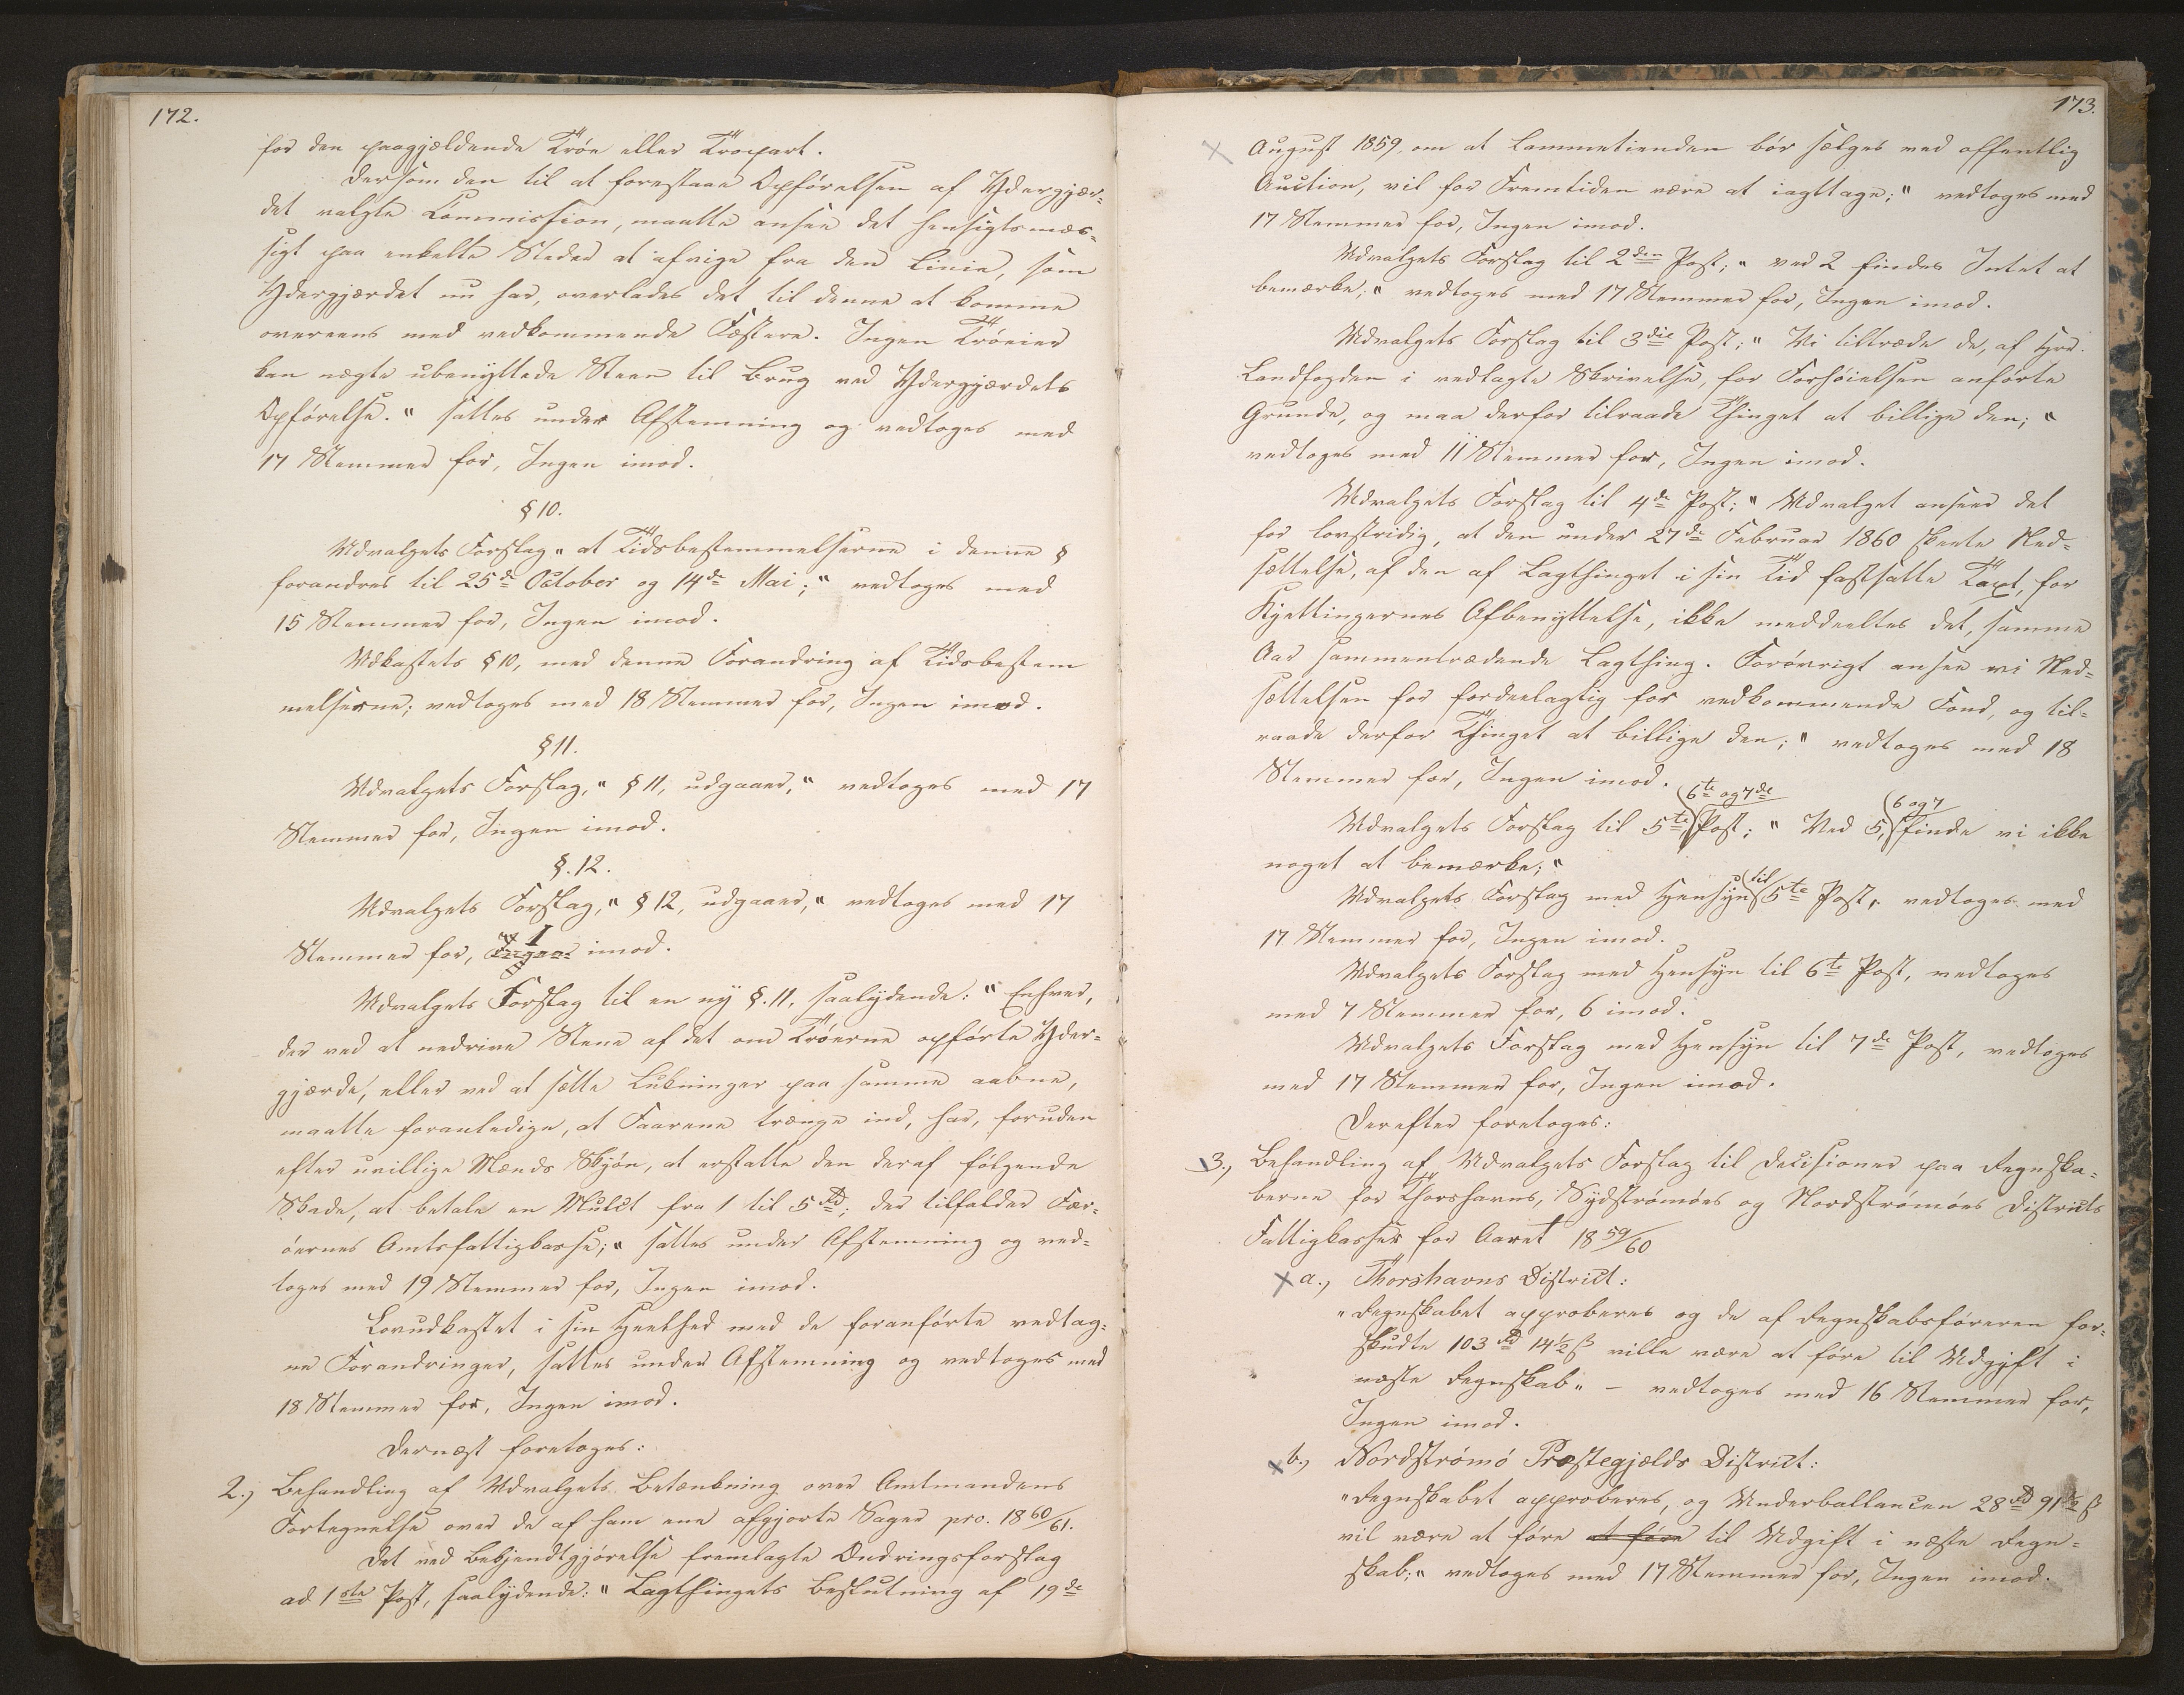 172.
for den paagjældende Trøe eller Trøepart.
Dersom den til at forestaae Opførelsen af Ydergjær-
det valgte Commission, maatte ansee det hensigtsmæs-
sigt paa enkelte Steder at afvige fra den Linie, som
Ydergjærdet nu har, overlades det til denne at komme
overeens med vedkommende Fæstere. Ingen Trøeeier
kan nægte ubenyttede Steen til Brug ved Ydergjærdets
Opførelse." sattes under Afstemning og vedtoges med
17 Stemmer for, Ingen imod.
§ 10.
Udvalgets Forslag "at Tidsbestemmelserne i denne §
forandres til 25de October og 14de Mai;" vedtoges med
15 Stemmer for, Ingen imod.
Udkastets § 10, med denne Forandring af Tidsbestem
melserne; vedtoges med 18 Stemmer for, Ingen imod.
§ 11.
Udvalgets Forslag, "§ 11, udgaaer," vedtoges med 17
Stemmer for, Ingen imod.
§. 12.
Udvalgets Forslag, "§ 12, udgaaer," vedtoges med 17
Stemmer for, Ingen 1 imod.
Udvalgets Forslag til en ny §. 11, saalydende: "Enhver,
der ved at nedrive Stene af det om Trøerne opførte Yder-
gjærde, eller ved at sætte Lukninger paa samme aabne,
maatte foranledige, at Faarene trænge ind, har, foruden
efter uvillige Mænds Skjøn, at erstatte den deraf følgende
Skade, at betale en Mulct fra 1 til 5 Rd; der tilfalder Fær-
øernes Amtsfattigkasse;" sattes under Afstemning og ved-
toges med 19 Stemmer for, Ingen imod.
Lovudkastet i sin Heelhed med de foranførte vedtag-
ne Forandringer, sattes under Afstemning og vedtoges med
18 Stemmer for, Ingen imod.
Dernæst foretoges:
2., Behandling af Udvalgets Betænkning over Amtmandens
Fortegnelse over de af ham ene afgjorte Sager pro. 1860/61.
Det ved Bekjendtgjørelse fremlagte Ændringsforslag
ad 1ste Post, saalydende: "Lagthingets Beslutning af 19de
173.
August 1859, om at Lammetienden bør sælges ved offentlig
Auction, vil for Fremtiden være at iagttage;" vedtoges med
17 Stemmer for, Ingen imod.
Udvalgets Forslag til 2den Post; "ved 2 findes Intet at
bemærke;" vedtoges med 17 Stemmer for, Ingen imod.
Udvalgets Forslag til 3die Post; "Vi tiltræde de, af Hr.
Landfogden i vedlagte Skrivelse, for Forhøielsen anførte
Grunde, og maa derfor tilraade Thinget at billige den;"
vedtoges med 11 Stemmer for, Ingen imod.
Udvalgets Forslag til 4de Post; "Udvalget anseer det
for lovstridig, at den under 27de Februar 1860 skeete Ned-
sættelse, af den af Lagthinget i sin Tid fastsatte Taxt, for
Kjettingernes Afbenyttelse, ikke meddeeltes det, samme
Aar sammentrædende Lagthing. Forøvrigt ansee vi Ned-
sættelsen for fordeelagtig for vedkommende Fond, og til-
raade derfor Thinget at billige den;" vedtoges med 18
Stemmer for, Ingen imod.
Udvalgets Forslag til 5te, 6te og 7de Post; "Ved 5, 6 og 7 finde vi ikke
noget at bemærke;"
Udvalgets Forslag med Hensyn til 5te Post, vedtoges med
17 Stemmer for, Ingen imod.
Udvalgets Forslag med Hensyn til 6te Post, vedtoges
med 7 Stemmer for, 6 imod.
Udvalgets Forslag med Hensyn til 7de Post, vedtoges
med 17 Stemmer for, Ingen imod.
Derefter foretoges:
3., Behandling af Udvalgets Forslag til Decisioner paa Regnska-
berne for Thorshavns, Sydstrømøes og Nordstrømøes Districts
Fattigkasser for Aaret 1859/60
a., Thorshavns District:
"Regnskabet approberes og de af Regnskabsføreren for-
skudte 103 Rd 14½ ß ville være at føre til Udgift i
næste Regnskab" – vedtoges med 16 Stemmer for,
Ingen imod.
b., Nordstrømø Præstegjælds District:
"Regnskabet approberes, og Underballancen 28 Rd 91½ ß
vil være at føre at føre til Udgift i næste Regn-
skab;" vedtoges med 17 Stemmer for, Ingen imod.